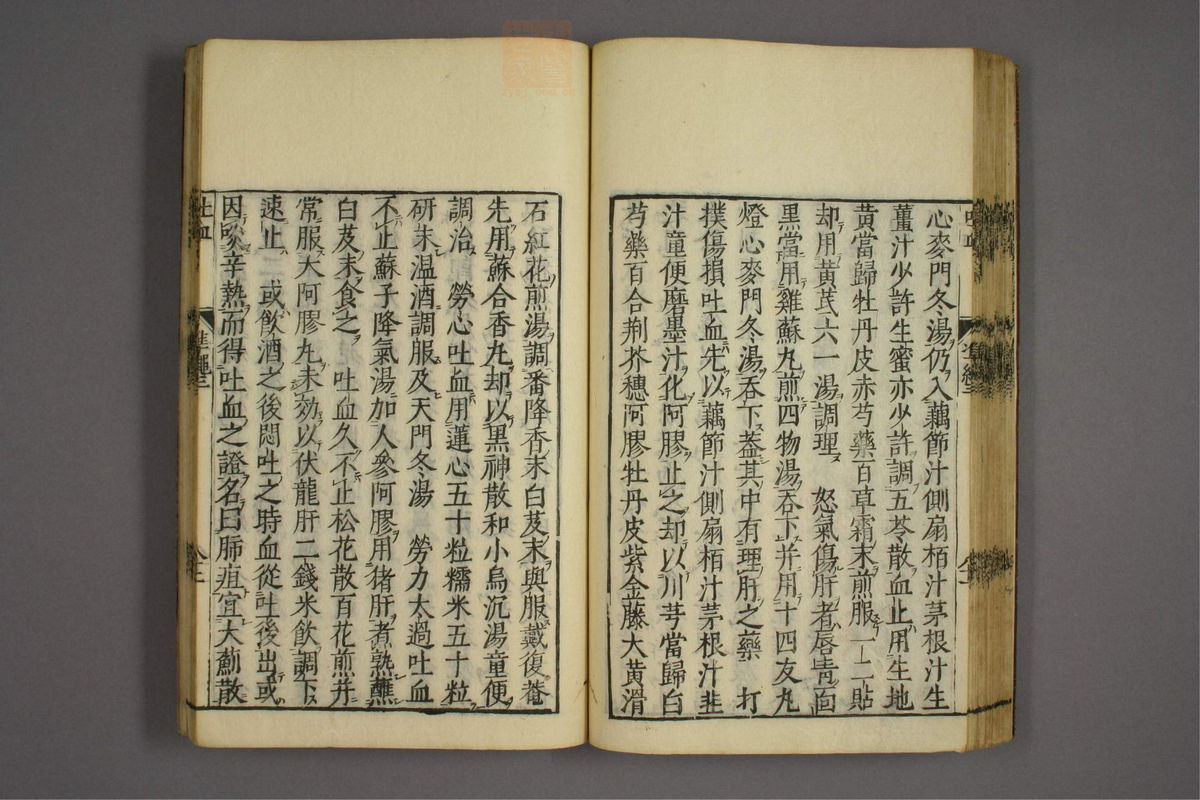 心麥門冬湯仍入藕節汁側扁栢汁茅根汁生
薑汁少許生蜜亦少許調五苓散血止用生地
黃當歸牡丹皮赤芍藥百草霜末煎服一二貼
却用黃芪六一湯調理 怒氣傷肝者唇青面
黑當用雞蘇丸煎四物湯吞下并用十四友丸
燈心麥門冬湯吞下蓋其中有理肝之藥 打
撲傷損吐血先以藕節汁側扇栢汁茅根汁韭
汁童便磨墨汁化阿膠止之却以川芎當歸白
芍藥百合荆芥穗阿膠牡丹皮紫金藤大黃滑
石紅花煎湯調番降香末白芨末與服戴復菴
先用蘇合香丸却以黑神散和小烏沉湯童便
調治 勞心吐血用蓮心五十粒糯米五十粒
研朱温酒調服及天門冬湯 勞力太過吐血
不止蘇子降氣湯加人參阿膠用猪肝煮熟蘸
白芨末食之 吐血久不止松花散百花煎并
常服大阿膠丸未効以伏龍肝二錢米飲調下
速止 或飲酒之後悶吐之時血從吐後出或
因啖辛熱而得吐血之證名曰肺疽宜大薊散
吐血 準繩三